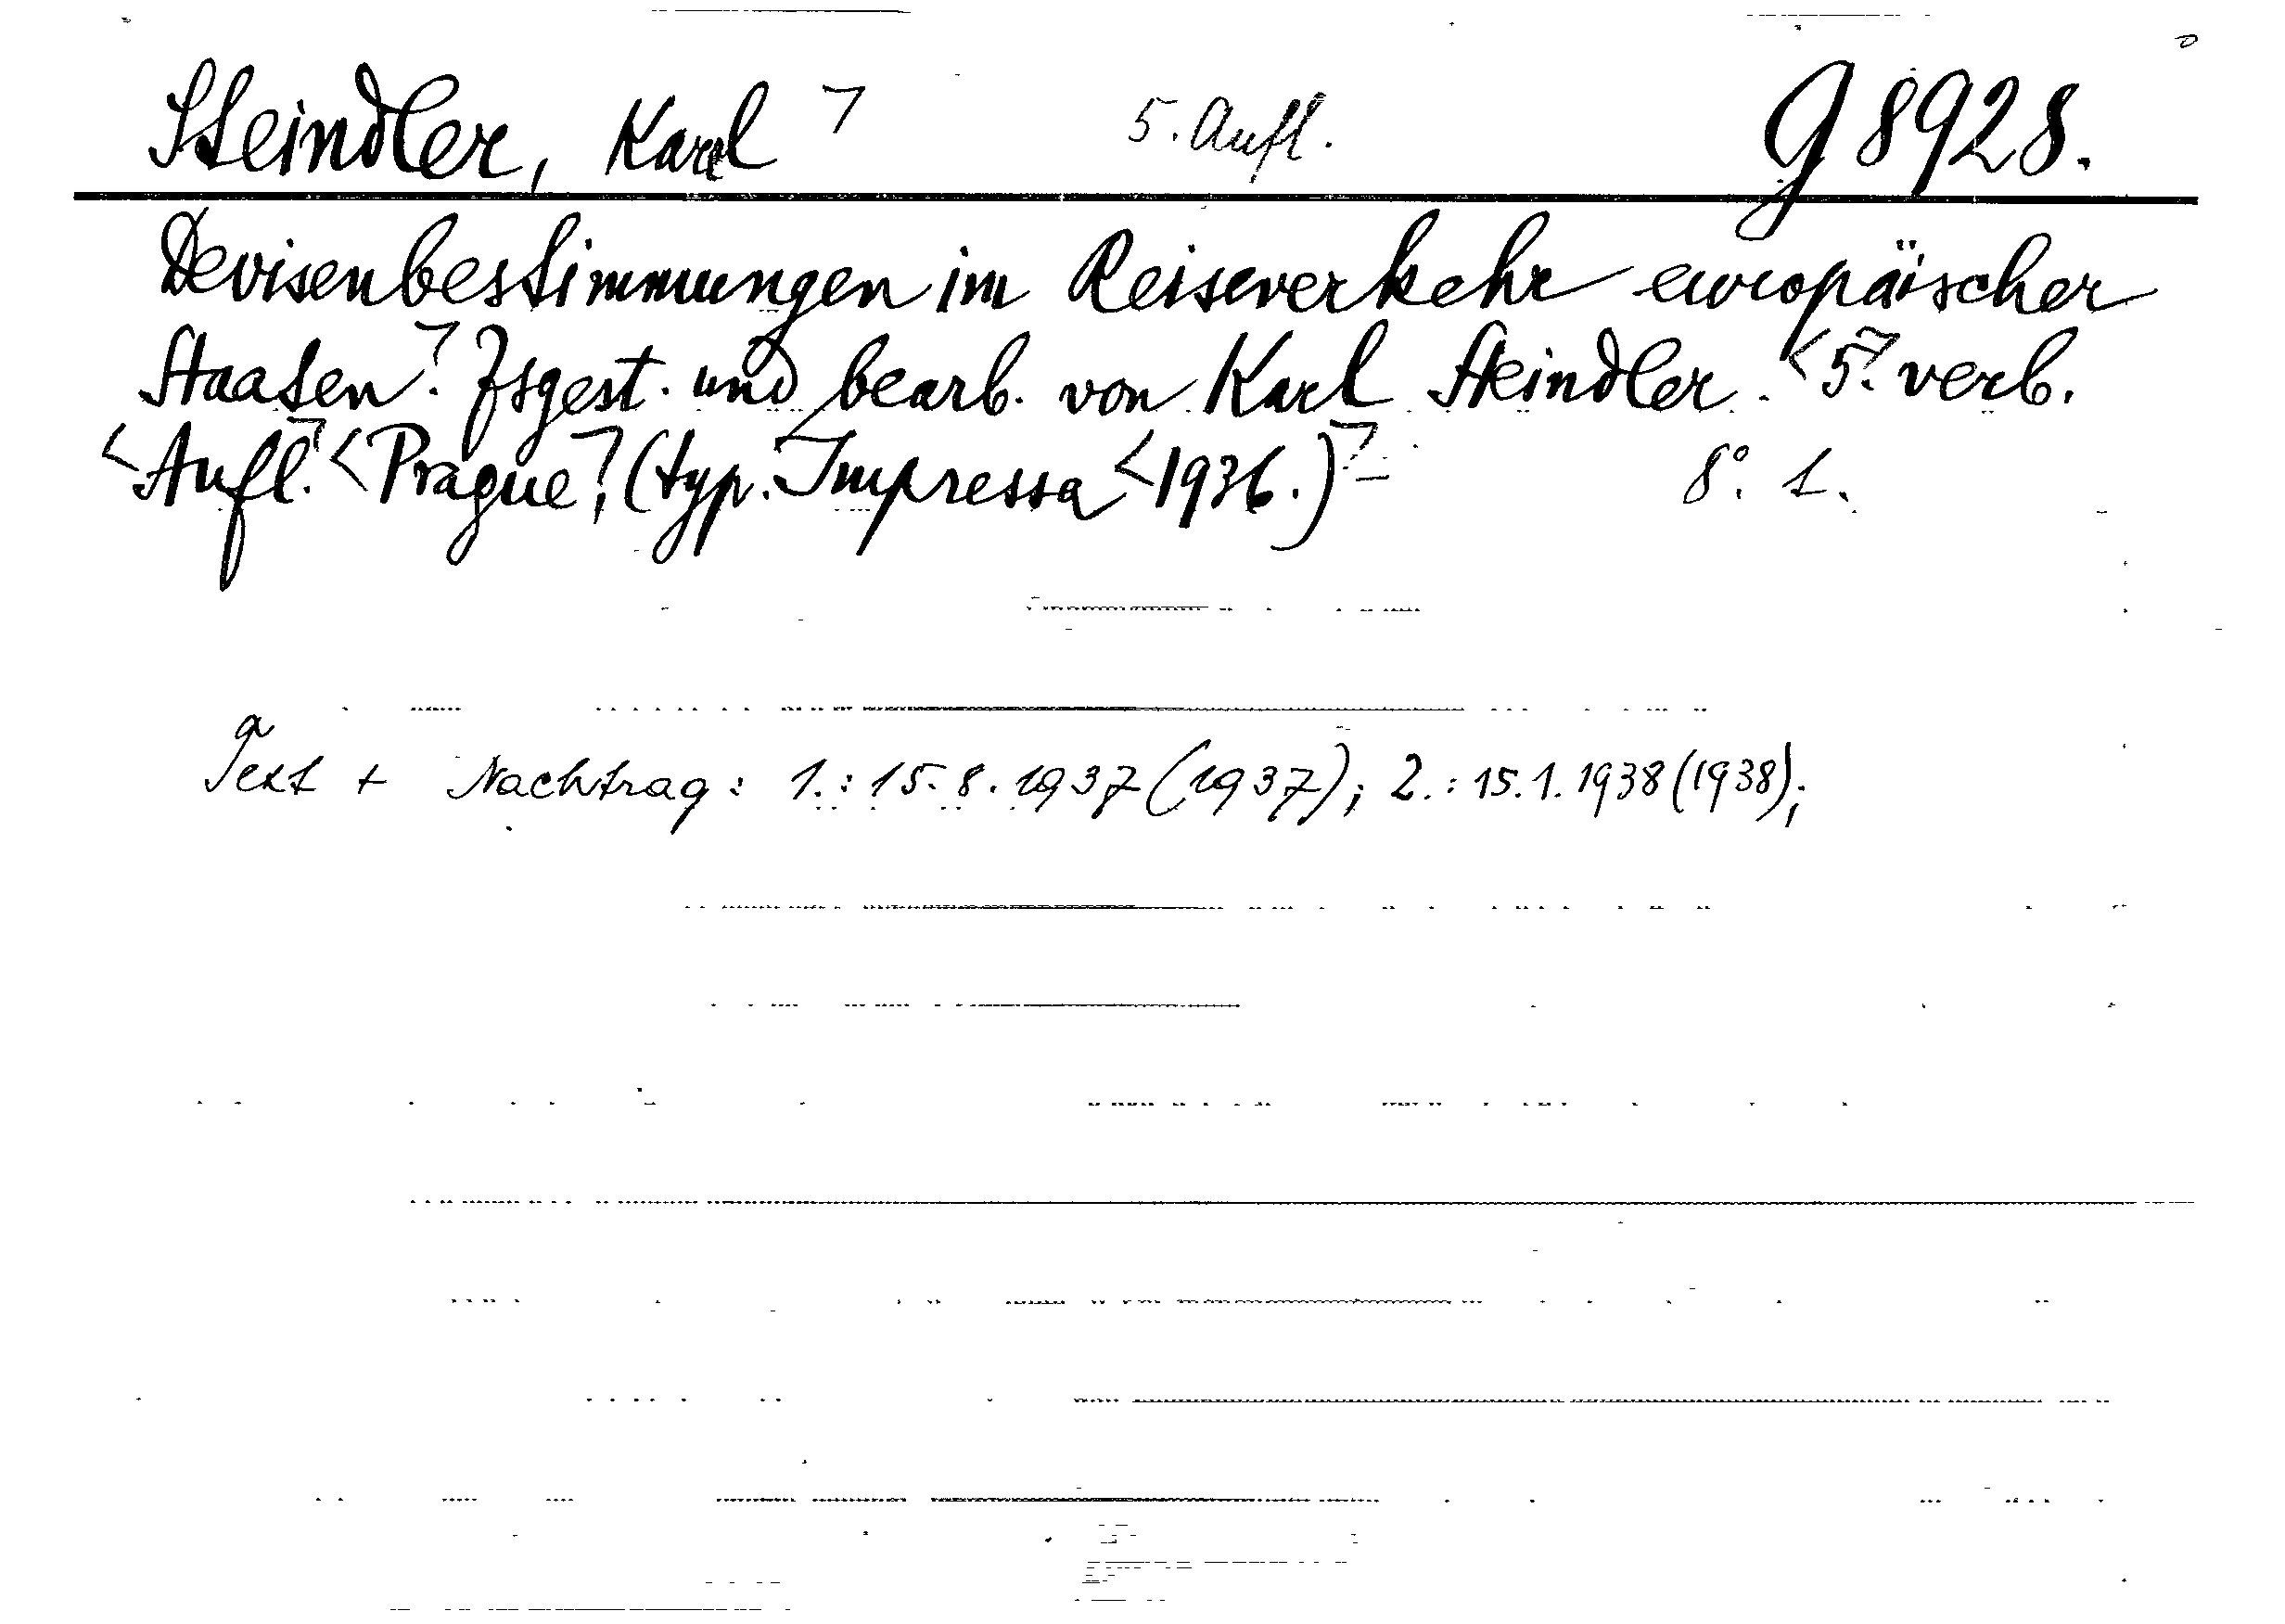 Steindler, Karel ⌝ 5. Aufl. G 8928.
Devisenbestimmungen im Reiseverkehr europäischer
Staaten.⌝ Zsgest. und bearb. von Karl Steindler. <5.⌝ verb.
<Aufl.⌝ <Prague,⌝ (typ. Impressa <1936.)⌝ 8°. 1.
Text + Nachtrag: 1.: 15. 8. 1937 (1937); 2.: 15. 1. 1938 (1938);